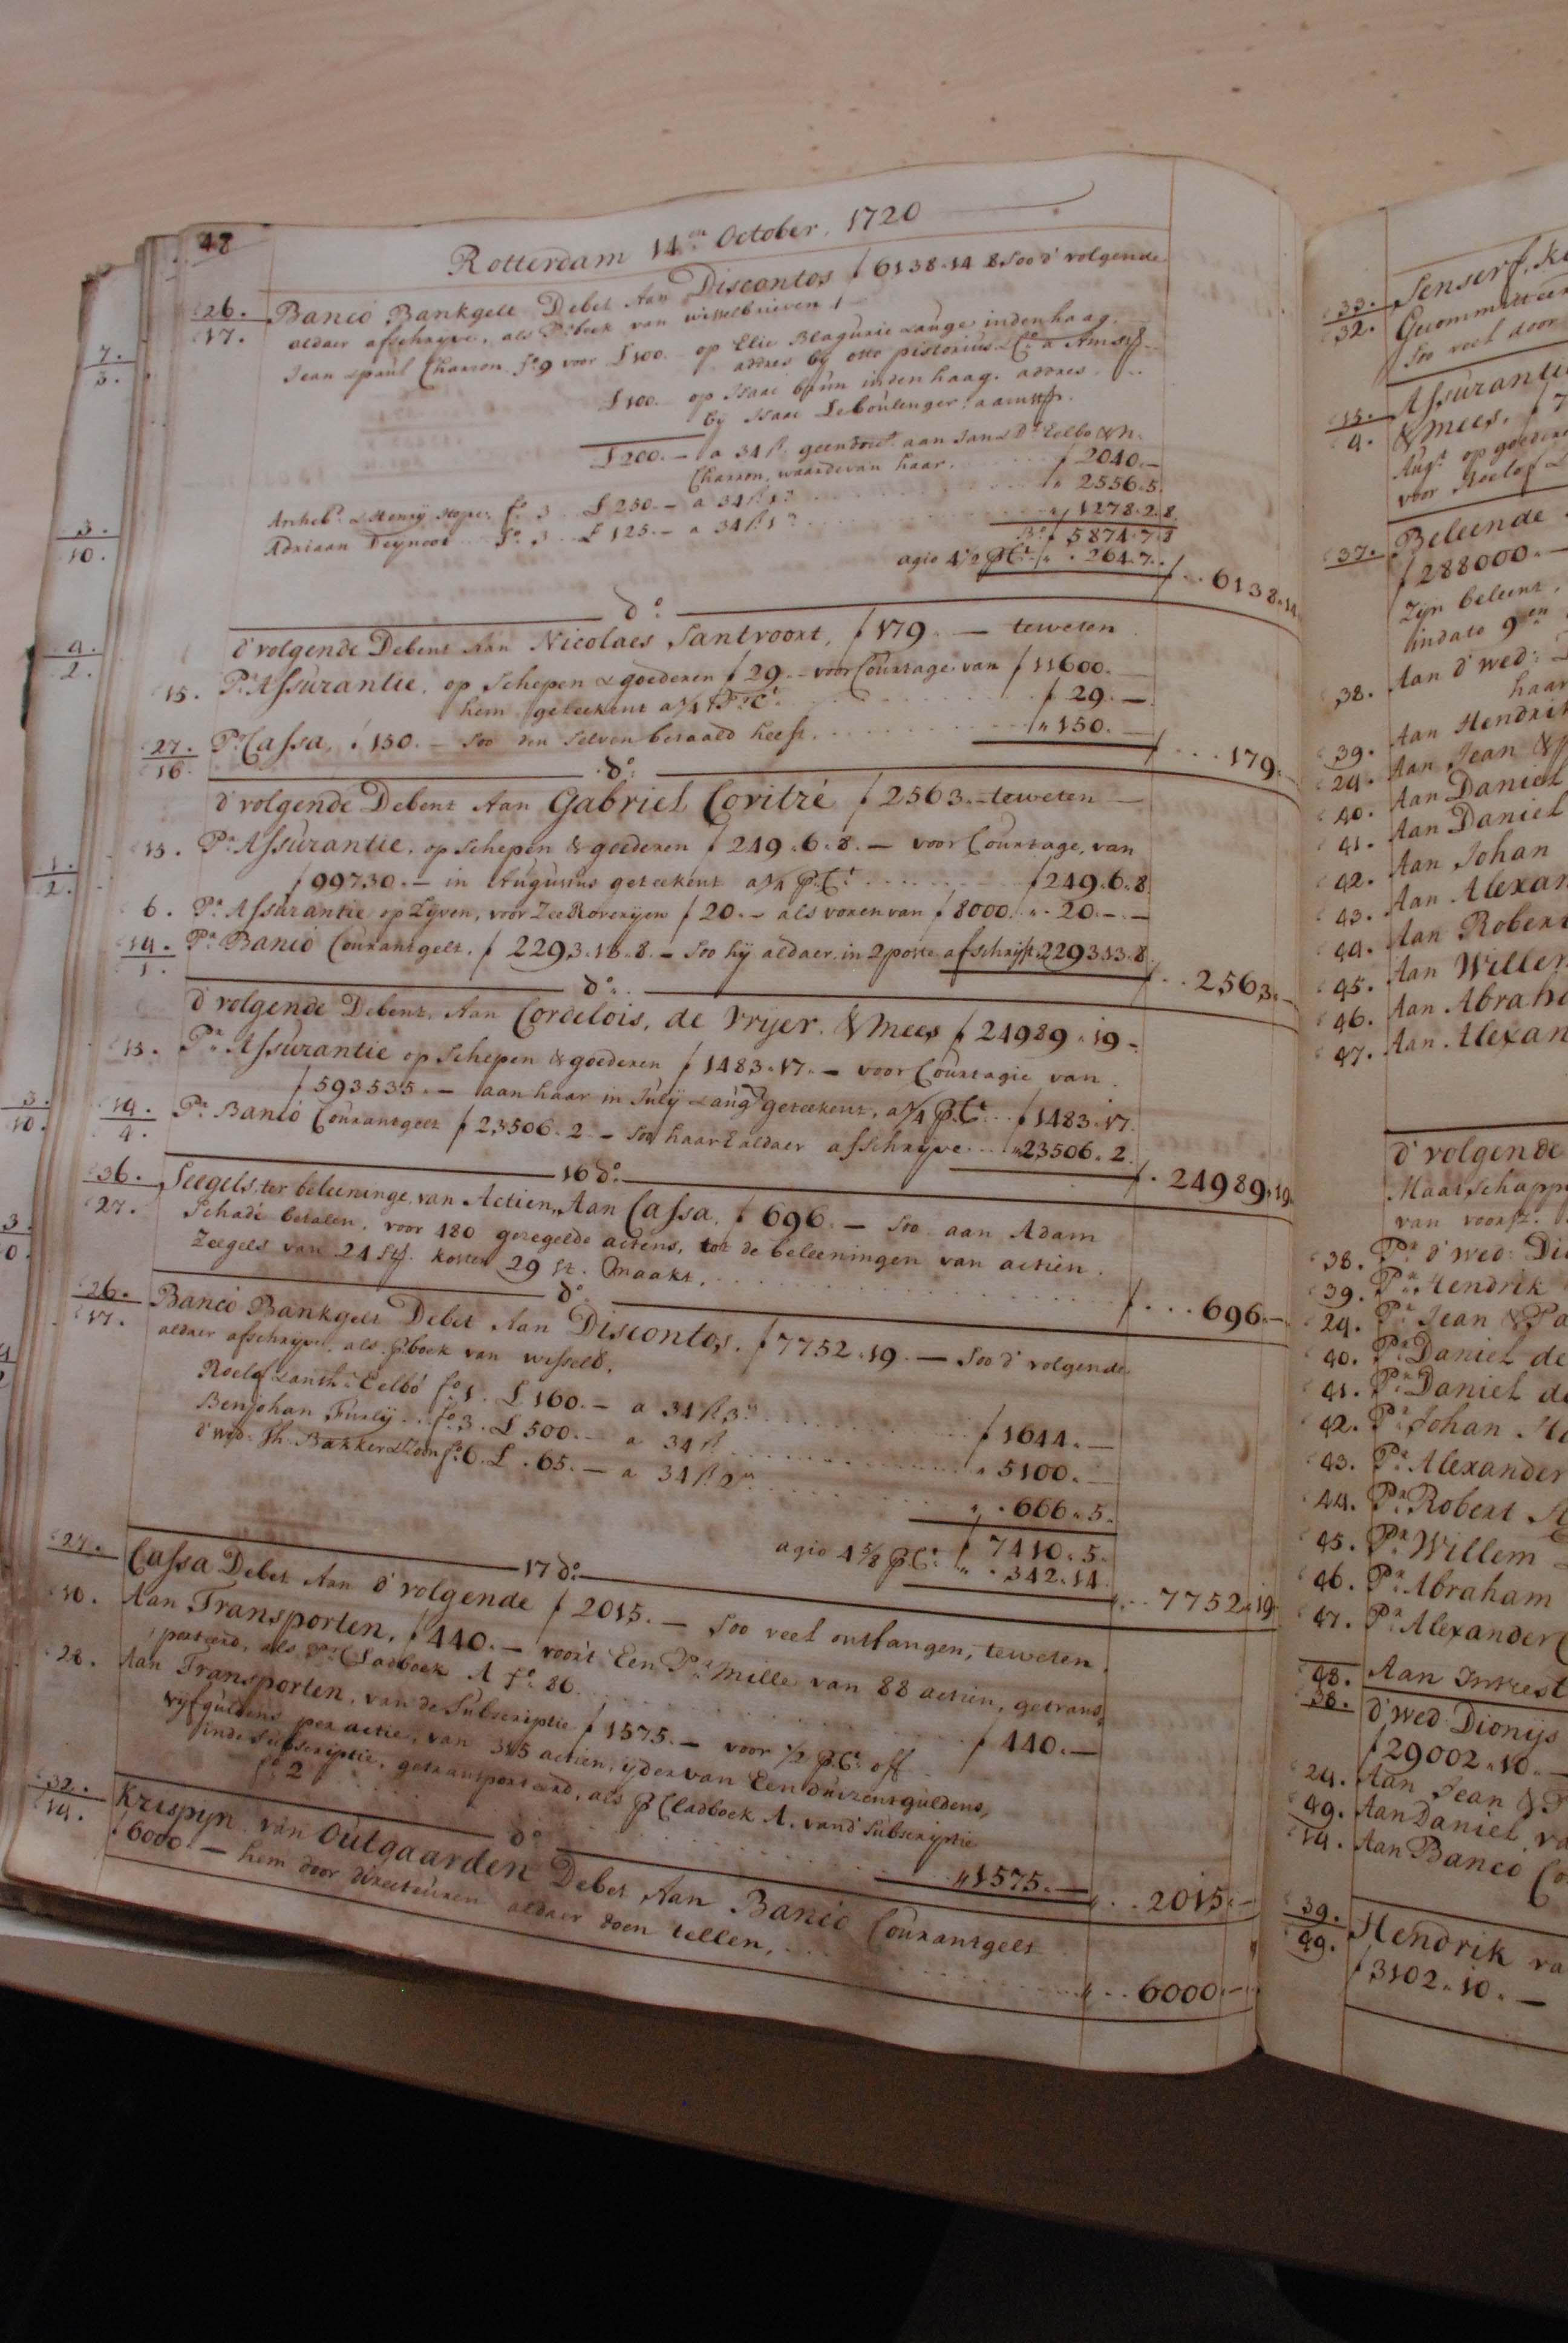 48
Rotterdam 14en October. 1720
26. 17. Banco Bankgelt Debet Aan Discontos f 6138.14 8 Soo d' volgende
aldaer afschryve, als Pr boek van wisselbrieven
Jean & paul Charron fo 9 voor £ 100.- op Elie Blagurie Lauge indenhaag.
addres by otto pistorius & Co a Amst
£ 100.- op Isaac brun inden haag. addres
by Isaac Leboulenger. a amst
£ 200.- a 34 ß. geendost. aan Jan & Dl Eelbo & n.
Charron, waarde van haar. f 2040.-
Archeb. & Henry Hope: fo 3 £ 250.- a 34 ß 1 " 2556.5.
Adriaan Deynoot fo 3 £ 125.- a 34 ß 1 " 1278.2.8
Bo f 5874.7.8
agio 4½ P Ct " 264.7. f 6138.14
do
d' volgende Debent Aan Nicolaes Santvoort, f 179.- teweten
15. Pr Assurantie, op Schepen & goederen f 29.- voor Courtage van f 11600.
hem geteekent a ¼ P Ct f 29.-
27. 16. Pr Cassa, f 150.- Soo den Selven betaald heeft. " 150.- f 179.
do
d' volgende Debent Aan Gabriel Coritzé f 2563.- teweten
15. Pr Assurantie, op Schepen & goederen f 249.6.8.- voor Courtage, van
f 99730.- in Augustus geteekent a ¼ P. Ct f 249.6.8
6. Pr Assurantie op Lyven, voor Zee Roveryen f 20.- als voren van f 8000. " 20.-.-
14. 1. Pr Banco Courantgelt, f 2293.13.8.- Soo hy aldaer, in 2 poste afschryft 2293.13.8 f 2563.-
do
d' volgende Debent, Aan Cordelois, de Vrijer, & Mees f 24989.19-
15. Pr Assurantie op Schepen & goederen f 1483.17.- voor Courtagie van
f 593535.- aan haar in July & augo geteekent, a ¼ P. Ct f 1483.17.
14. 4. Pr Banco Courantgelt f 23506.2.- Soo haar E aldaer afschryve " 23506.2. f 24989.19.
16 do
36. 27. Seegels, ter beleeninge, van Actien, Aan Cassa, f 696.- Soo aan Adam
Schadé betalen, voor 480 gezegelde actens, tot de beleeningen van actien.
Zeegels van 24 st. kosten 29 st. Maakt, f 696.-
do
26. 17. Banco Bankgelt Debet Aan Discontos, f 7752.19.- Soo d' volgende
aldaer afschryve, als Pr boek van wisselb.
Roelof & anth: Eelbo fo 1. £ 160.- a 34 ß 3 f 1644.-
Benjohan Furly fo 3. £ 500.- a 34 ß " 5100.-
d' wed. Jh. Bakker & Zoon fo 6. £ 65.- a 34 ß 2 " 666.5.
f 7410.5.
agio 4⅝ P Ct " 342.14. 7752.19
17 do
27. Cassa Debet Aan d' volgende f 2015.- Soo veel ontfangen, teweten
10. Aan Transporten, f 440.- voor't Een Pr Mille van 88 actien, getrans
porteerd, als Pr Cladboek A fo 86. f 440.-
28. Aan Transporten, van de Subscriptie f 1575.- voor ½ P. Ct off
vyf guldens per actie, van 315 actien, yder van Een duizent guldens,
inde Subscriptie, getransporteerd, als P Cladboek A. vand' Subscriptie
fo 2 " 1575.- 2015.-
do
32. 14. Krispijn van Outgaarden Debet Aan Banco Courantgelt
f 6000.- hem door directeuren aldaer doen tellen, 6000.-
7.
3.
3.
10.
4.
2.
1.
2.
3.
10.
3.
33. 32. Senserf,
Gecommitteer
Soo veel door
15. 4. Assurantie
& Mees, f 7
Augt op goederen
voor Roelof
37. Beleende
f 288000.-
Zyn beleent,
indato 9en
38. Aan d' wed:
haar
39. Aan Hendrik
24. Aan Jean &
40. Aan Daniel
41. Aan Daniel
42. Aan Johan
43. Aan Alexan
44. Aan Robert
45. Aan Willem
46. Aan Abraha
47. Aan Alexan
d' volgende
Maatschapp
van voorsz.
38. Pr d' wed: Di
39. Pr Hendrik
24. Pr Jean & Pa
40. Pr Daniel de
41. Pr Daniel d
42. Pr Johan
43. Pr Alexander
44. Pr Robert
45. Pr Willem
46. Pr Abraham
47. Pr Alexander
48. Aan Intrest
38. d' wed: Dionijs
f 29002.10.-
24. Aan Jean &
49. Aan Daniel va
14. Aan Banco Co
39. 49. Hendrik va
f 3102.10.-